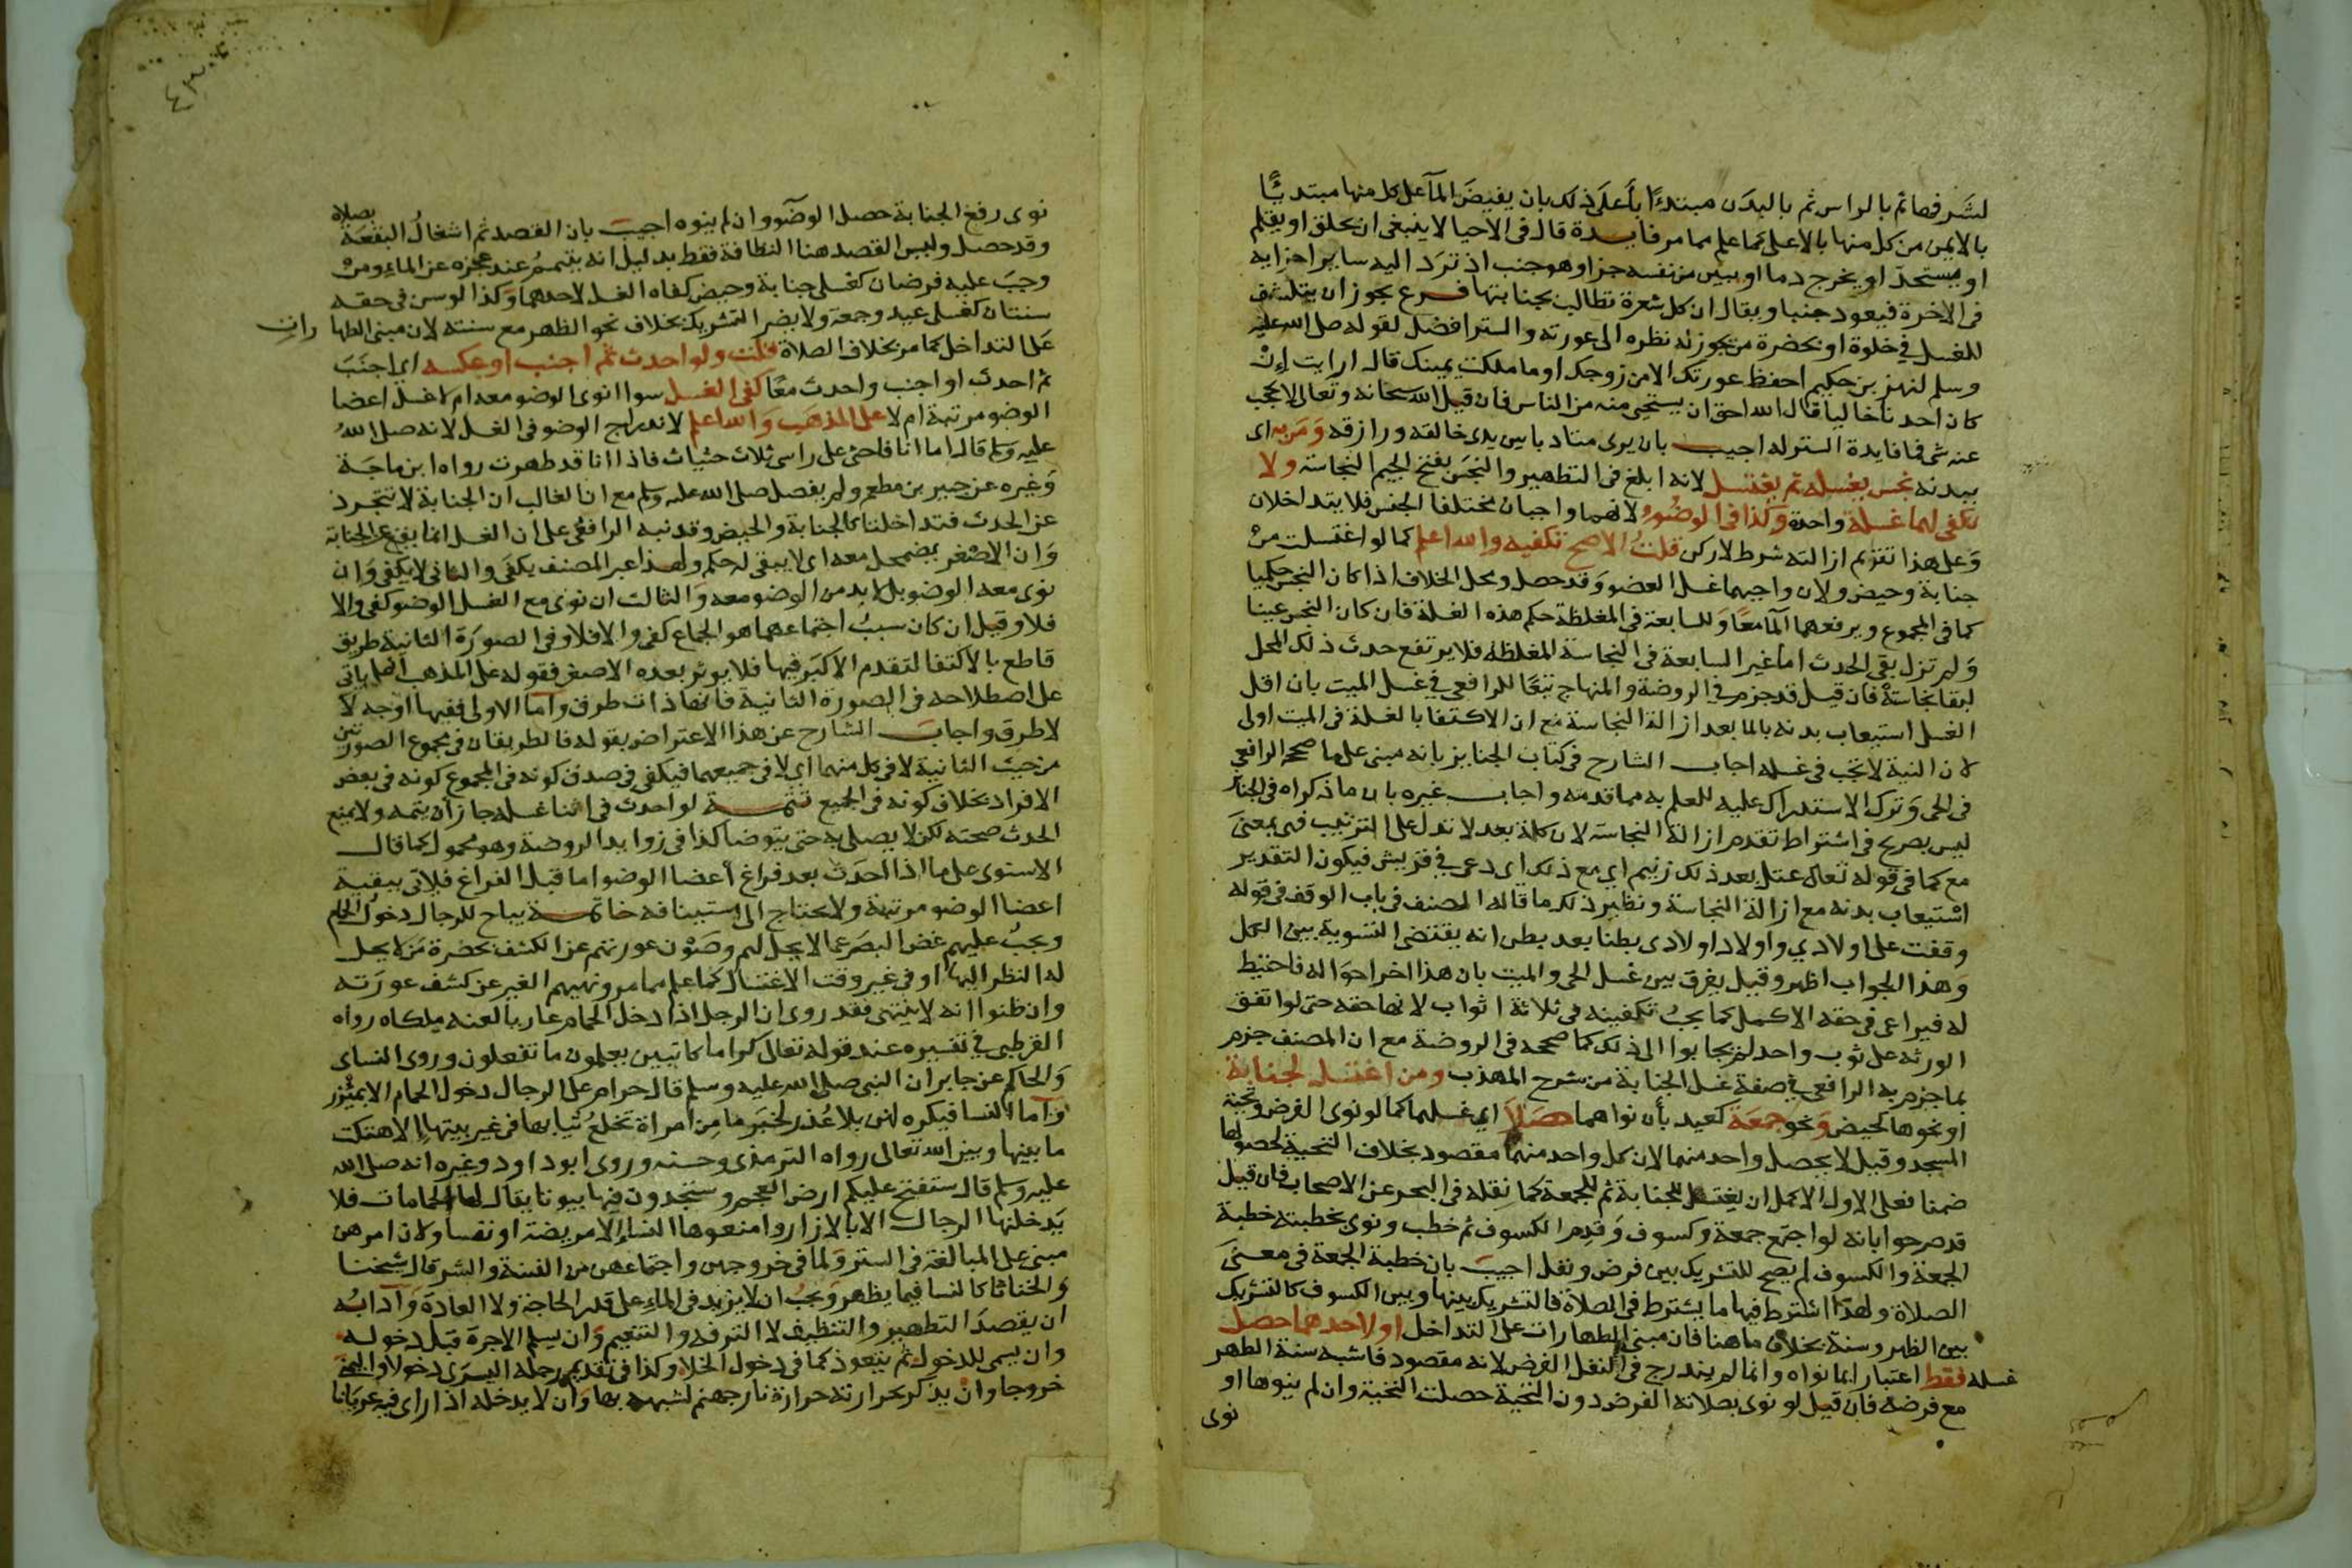 لشرفها ثم بالراس ثم بالبدن مبتدءا بأعلى ذلك بان يفيض المآ على كل منها مبتديًا
بالايمن من كل منها بالاعلى كما علم مما مر فايدة قال فى الاحيا لا ينبغى ان يحلق او يقلم
او يستحد او يخرج دما او يبين من نفسه جزا وهو جنب اذ ترد اليه ساير اجزايه
فى الاخرة فيعود جنبا ويقال ان كل شعرة تطالب بجنابتها فرع يجوز ان يتكشف
للغسل في خلوة او بحضرة من يجوز له نظره الى عورته والستر افضل لقوله صلى الله عليه
وسلم لبهز بن حكيم احفظ عورتك الا من زوجك او ما ملكت يمينك قال ارايت إن
كان احدنا خاليا قال الله احق ان يستحى منه من الناس فان قيل الله سبحانه وتعالى لا يحجب
عنه شى فما فايدة الستر له اجيب بان يرى متادبا بين يدى خالقه ورازقه ومن به اى
ببدنه نجس يغسله ثم يغتسل لانه ابلغ فى التطهير والنجس بفتح الجيم النجاسة ولا
تكفى لهما غسلة واحدة وكذا فى الوضوء لانهما واجبان مختلفا الجنس فلا يتداخلان
وعلى هذا تقديم ازالته شرط لا ركن قلت الاصح تكفيه والله اعلم كما لو اغتسلت من
جنابة وحيض ولان واجبهما غسل العضو وقد حصل ومحل الخلاف اذا كان النجس حكميا
كما فى المجموع ويرفعهما المآ معًا وللسابعة فى المغلظة حكم هذه الغسلة فان كان النجس عينا
ولم تزل بقى الحدث اما غير السابعة فى النجاسة المغلظة فلا يرتفع حدث ذلك المحل
لبقا نجاسته فان قيل قد جزم في الروضة والمنهاج تبعًا للرافعي في غسل الميت بان اقل
الغسل استيعاب بدنه بالما بعد ازالة النجاسة مع ان الاكتفا بالغسلة فى الميت اولى
لان النية لا تجب فى غسله اجاب الشارح فى كتاب الجنايز بانه مبنى على ما صححه الرافعي
فى الحى وترك الاستدراك عليه للعلم به مما قدمته واجاب غيره بان ما ذكراه فى الجنائز
ليس بصريح فى اشتراط تقدم ازالة النجاسة لان كلمة بعد لا تدل على الترتيب فهى بمعنى
مع كما فى قوله تعالى عتل بعد ذلك زنيم اي مع ذلك اى دعى في قريش فيكون التقدير
استيعاب بدنه مع ازالة النجاسة ونظير ذلك ما قاله المصنف فى باب الوقف فى قوله
وقفت على اولادي واولاد اولادى بطنا بعد بطن انه يقتضى التسوية بين الكل
وهذا الجواب اظهر وقيل يفرق بين غسل الحى والميت بان هذا اخر احواله فاحتيط
له فيراعى فى حقه الاكمل كما يجب تكفينه فى ثلاثة اثواب لانها حقه حتى لو اتفق
الورثة على ثوب واحد لم يجابوا الى ذلك كما صححه فى الروضة مع ان المصنف جزم
بما جزم به الرافعي في صفة غسل الجنابة من شرح المهذب ومن اغتسل لجنابة
او نحوها كحيض ونحو جمعة كعيد بأن نواهما حصلا اي غسلهما كما لو نوى الفرض وتحية
المسجد وقيل لا يحصل واحد منهما لان كل واحد منهما مقصود بخلاف التحية لحصولها
ضمنا فعلى الاول الاكمل ان يغتسل للجنابة ثم للجمعة كما نقله فى البحر عن الاصحاب فان قيل
قد صرحوا بانه لو اجتمع جمعة وكسوف وقدم الكسوف ثم خطب ونوى بخطبته خطبة
الجمعة والكسوف لم يصح للتشريك بين فرض ونفل اجيب بان خطبة الجمعة فى معنى
الصلاة ولهذا اشترط فيها ما يشترط فى الصلاة فالتشريك بينها وبين الكسوف كالتشريك
بين الظهر وسنة بخلاف ما هنا فان مبنى الطهارات على التداخل او لاحدهما حصل
غسله فقط اعتبارا بما نواه وانما لم يندرج فى النفل الفرض لانه مقصود فاشبه سنة الظهر
مع فرضه فان قيل لو نوى بصلاته الفرض دون التحية حصلت التحية وان لم ينوها او
نوى
نوى رفع الجنابة حصل الوضوء وان لم ينوه اجيب بان القصد ثم اشغال البقعة بصلاة
وقد حصل وليس القصد هنا النظافة فقط بدليل انه يتيمم عند عجزه عن الماء ومن
وجب عليه فرضان كغسلى جنابة وحيض كفاه الغسل لاحدهما وكذا لو سن فى حقه
سنتان كغسلى عيد وجمعة ولا يضر التشريك بخلاف نحو الظهر مع سنته لان مبنى الطهارات
على التداخل كما مر بخلاف الصلاة قلت ولو احدث ثم اجنب او عكسه اي اجنب
ثم احدث او اجنب واحدث معًا كفى الغسل سوا انوى الوضو معه ام لا غسل اعضا
الوضو مرتبة ام لا على المذهب والله اعلم لاندراج الوضو فى الغسل لانه صلى الله
عليه وسلم قال اما انا فاحثى على راسى ثلاث حثيات فاذا انا قد طهرت رواه ابن ماجة
وغيره عن جبير بن مطعم ولم يفصل صلى الله عليه وسلم مع ان الغالب ان الجنابة لا تتجرد
عن الحدث فتداخلتا كالجنابة والحيض وقد نبه الرافعى على ان الغسل انما يقع عن الجنابة
وان الاصغر يضمحل معه اى لا يبقى له حكم ولهذا عبر المصنف يكفى والثانى لا يكفى وان
نوى معه الوضو بل لا بد من الوضو معه والثالث ان نوى مع الغسل الوضو كفى والا
فلا وقيل ان كان سبب اجتماعهما هو الجماع كفى والا فلا وفى الصورة الثانية طريق
قاطع بالاكتفا لتقدم الاكبر فيها فلا يوثر بعده الاصغر فقوله على المذهب انما ياتى
على اصطلاحه فى الصورة الثانية فانها ذات طرق واما الاولى ففيها اوجه لا
لا طرق واجاب الشارح عن هذا الاعتراض بقوله فالطريقان فى مجموع الصورتين
من حيث الثانية لا فى كل منهما اي لا فى جميعهما فيكفى فى صدق كونه فى المجموع كونه فى بعض
الافراد بخلاف كونه فى الجميع تتمـة لو احدث فى اثنا غسله جاز ان يتمه ولا يمنع
الحدث صحته لكن لا يصلى به حتى يتوضا كذا فى زوايد الروضة وهو محمول كما قال
الاسنوى على ما اذا احدث بعد فراغ أعضا الوضو اما قبل الفراغ فياتى ببقية
اعضا الوضو مرتبة ولا يحتاج الى استينافه خاتمـة يباح للرجال دخول الحمام
ويجب عليهم غض البصر عما لا يحل لهم وصون عورتهم عن الكشف بحضرة من لا يحل
له النظر اليها او فى غير وقت الاغتسال كما علم مما مر ونهيهم الغير عن كشف عورته
وان ظنوا انه لا ينتهى فقد روى ان الرجل اذا دخل الحمام عاريا لعنه ملكاه رواه
القرطبى في تفسيره عند قوله تعالى كراما كاتبين يعلمون ما تفعلون وروى النساى
والحاكم عن جابر ان النبى صلى الله عليه وسلم قال حرام على الرجال دخول الحمام الا بميزر
وأما النسا فيكره لهن بلا عذر لخبر ما من امراة تخلع ثيابها فى غير بيتها الا هتكت
ما بينها وبين الله تعالى رواه الترمذى وحسنه وروى ابو داود وغيره انه صلى الله
عليه وسلم قال ستفتح عليكم ارض العجم وستجدون فيها بيوتا يقال لها الحمامات فلا
يدخلنها الرجال الا بالازار وامنعوها النساء الا مريضة او نفسا ولان امرهن
مبنى على المبالغة فى الستر ولما فى خروجهن واجتماعهن من الفتنة والشر قال شيخنا
والخناثا كالنسا فيما يظهر ويجب ان لا يزيد فى الماء على قدر الحاجة ولا العادة وآدابه
ان يقصد التطهير والتنظيف لا الترفه والتنعيم وان يسلم الاجرة قبل دخوله
وان يسمى للدخول ثم يتعوذ كما فى دخول الخلاء وكذا فى تقديم رجله اليسرى دخولا واليمنى
خروجا وان يذكر بحرارته حرارة نار جهنم لشبهه بها وان لا يدخله اذا راى فيه عريانا